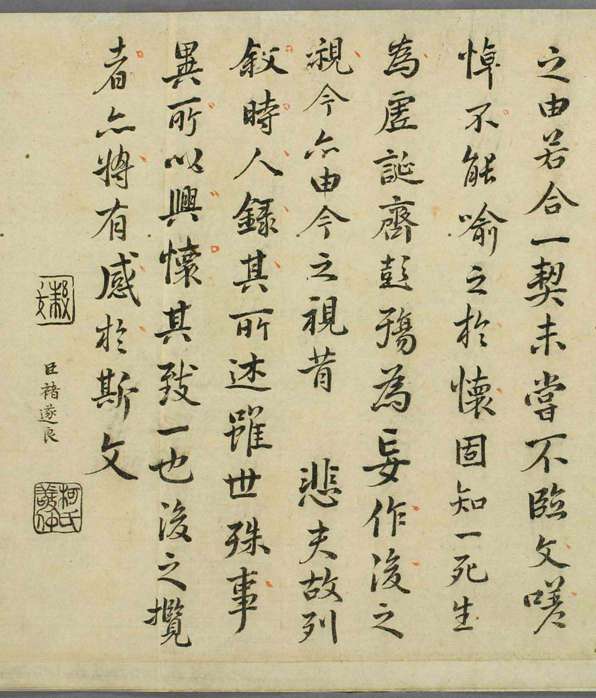 之由若合一契未嘗不臨文嗟
悼不能喻之於懷固知一死生
為虛誕齊彭殤為妄作後之
視今亦由今之視昔 悲夫故列
敘時人錄其所述雖世殊事
異所以興懷其致一也後之攬
者亦將有感於斯文
臣褚遂良
柯氏敬仲